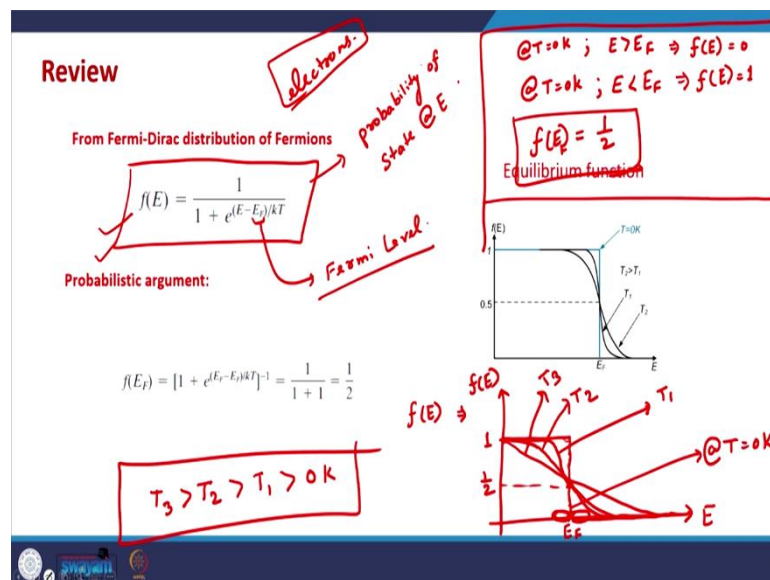 Review
electrons.
probability of
state @ E
From Fermi-Dirac distribution of Fermions
f(E) = 1 / 1 + e^(E−E_F)/kT
Fermi Level.
Probabilistic argument:
f(E_F) = [1 + e^(E_F−E_F)/kT]^−1 = 1 / 1 + 1 = 1 / 2
T3 > T2 > T1 > 0K
@T=0K ; E>E_F ⇒ f(E)=0
@T=0K ; E<E_F ⇒ f(E)=1
f(E_F) = 1/2
Equilibrium function
f(E)
T=0K
1
T2>T1
0.5
T1
T2
E_F
E
f(E) ⇒
f(E)
T3
T2
T1
1
1/2
@T=0K
E_F
E
swayam